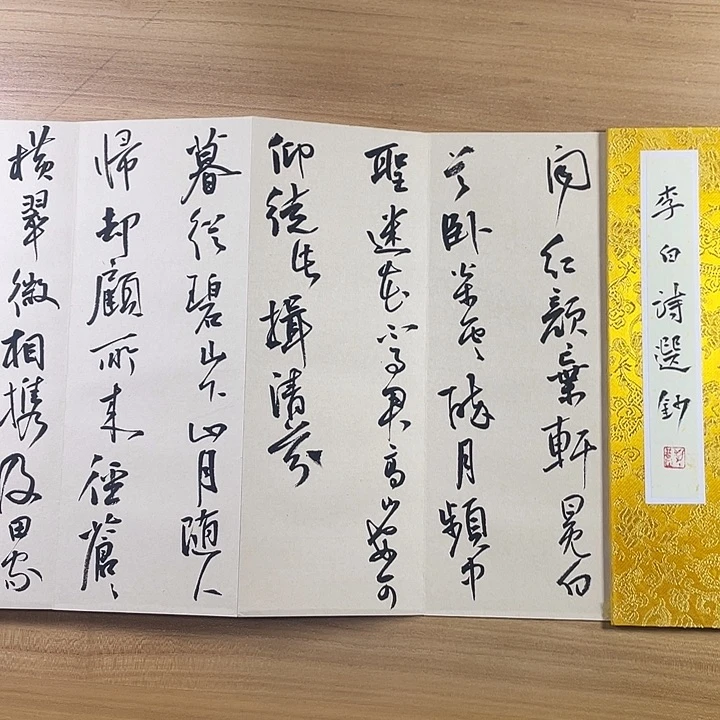 李白詩選鈔
聞紅顏棄軒冕白
首卧松雲醉月頻中
聖迷花不事君高山安可
仰徒此揖清芬
暮從碧山下山月随人
歸却顧所來徑蒼〻
横翠微相携及田家